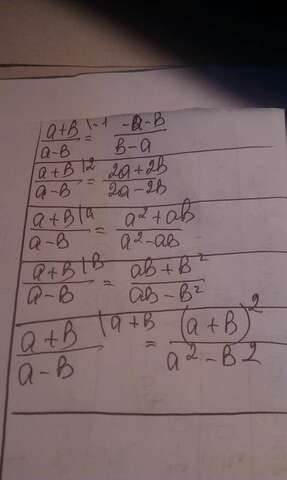 (a+B)/(a-B) \-1 = (-a-B)/(B-a)
(a+B)/(a-B) \2 = (2a+2B)/(2a-2B)
(a+B)/(a-B) \a = (a²+aB)/(a²-aB)
(a+B)/(a-B) \B = (aB+B²)/(aB-B²)
(a+B)/(a-B) \a+B = (a+B)²/(a²-B²)